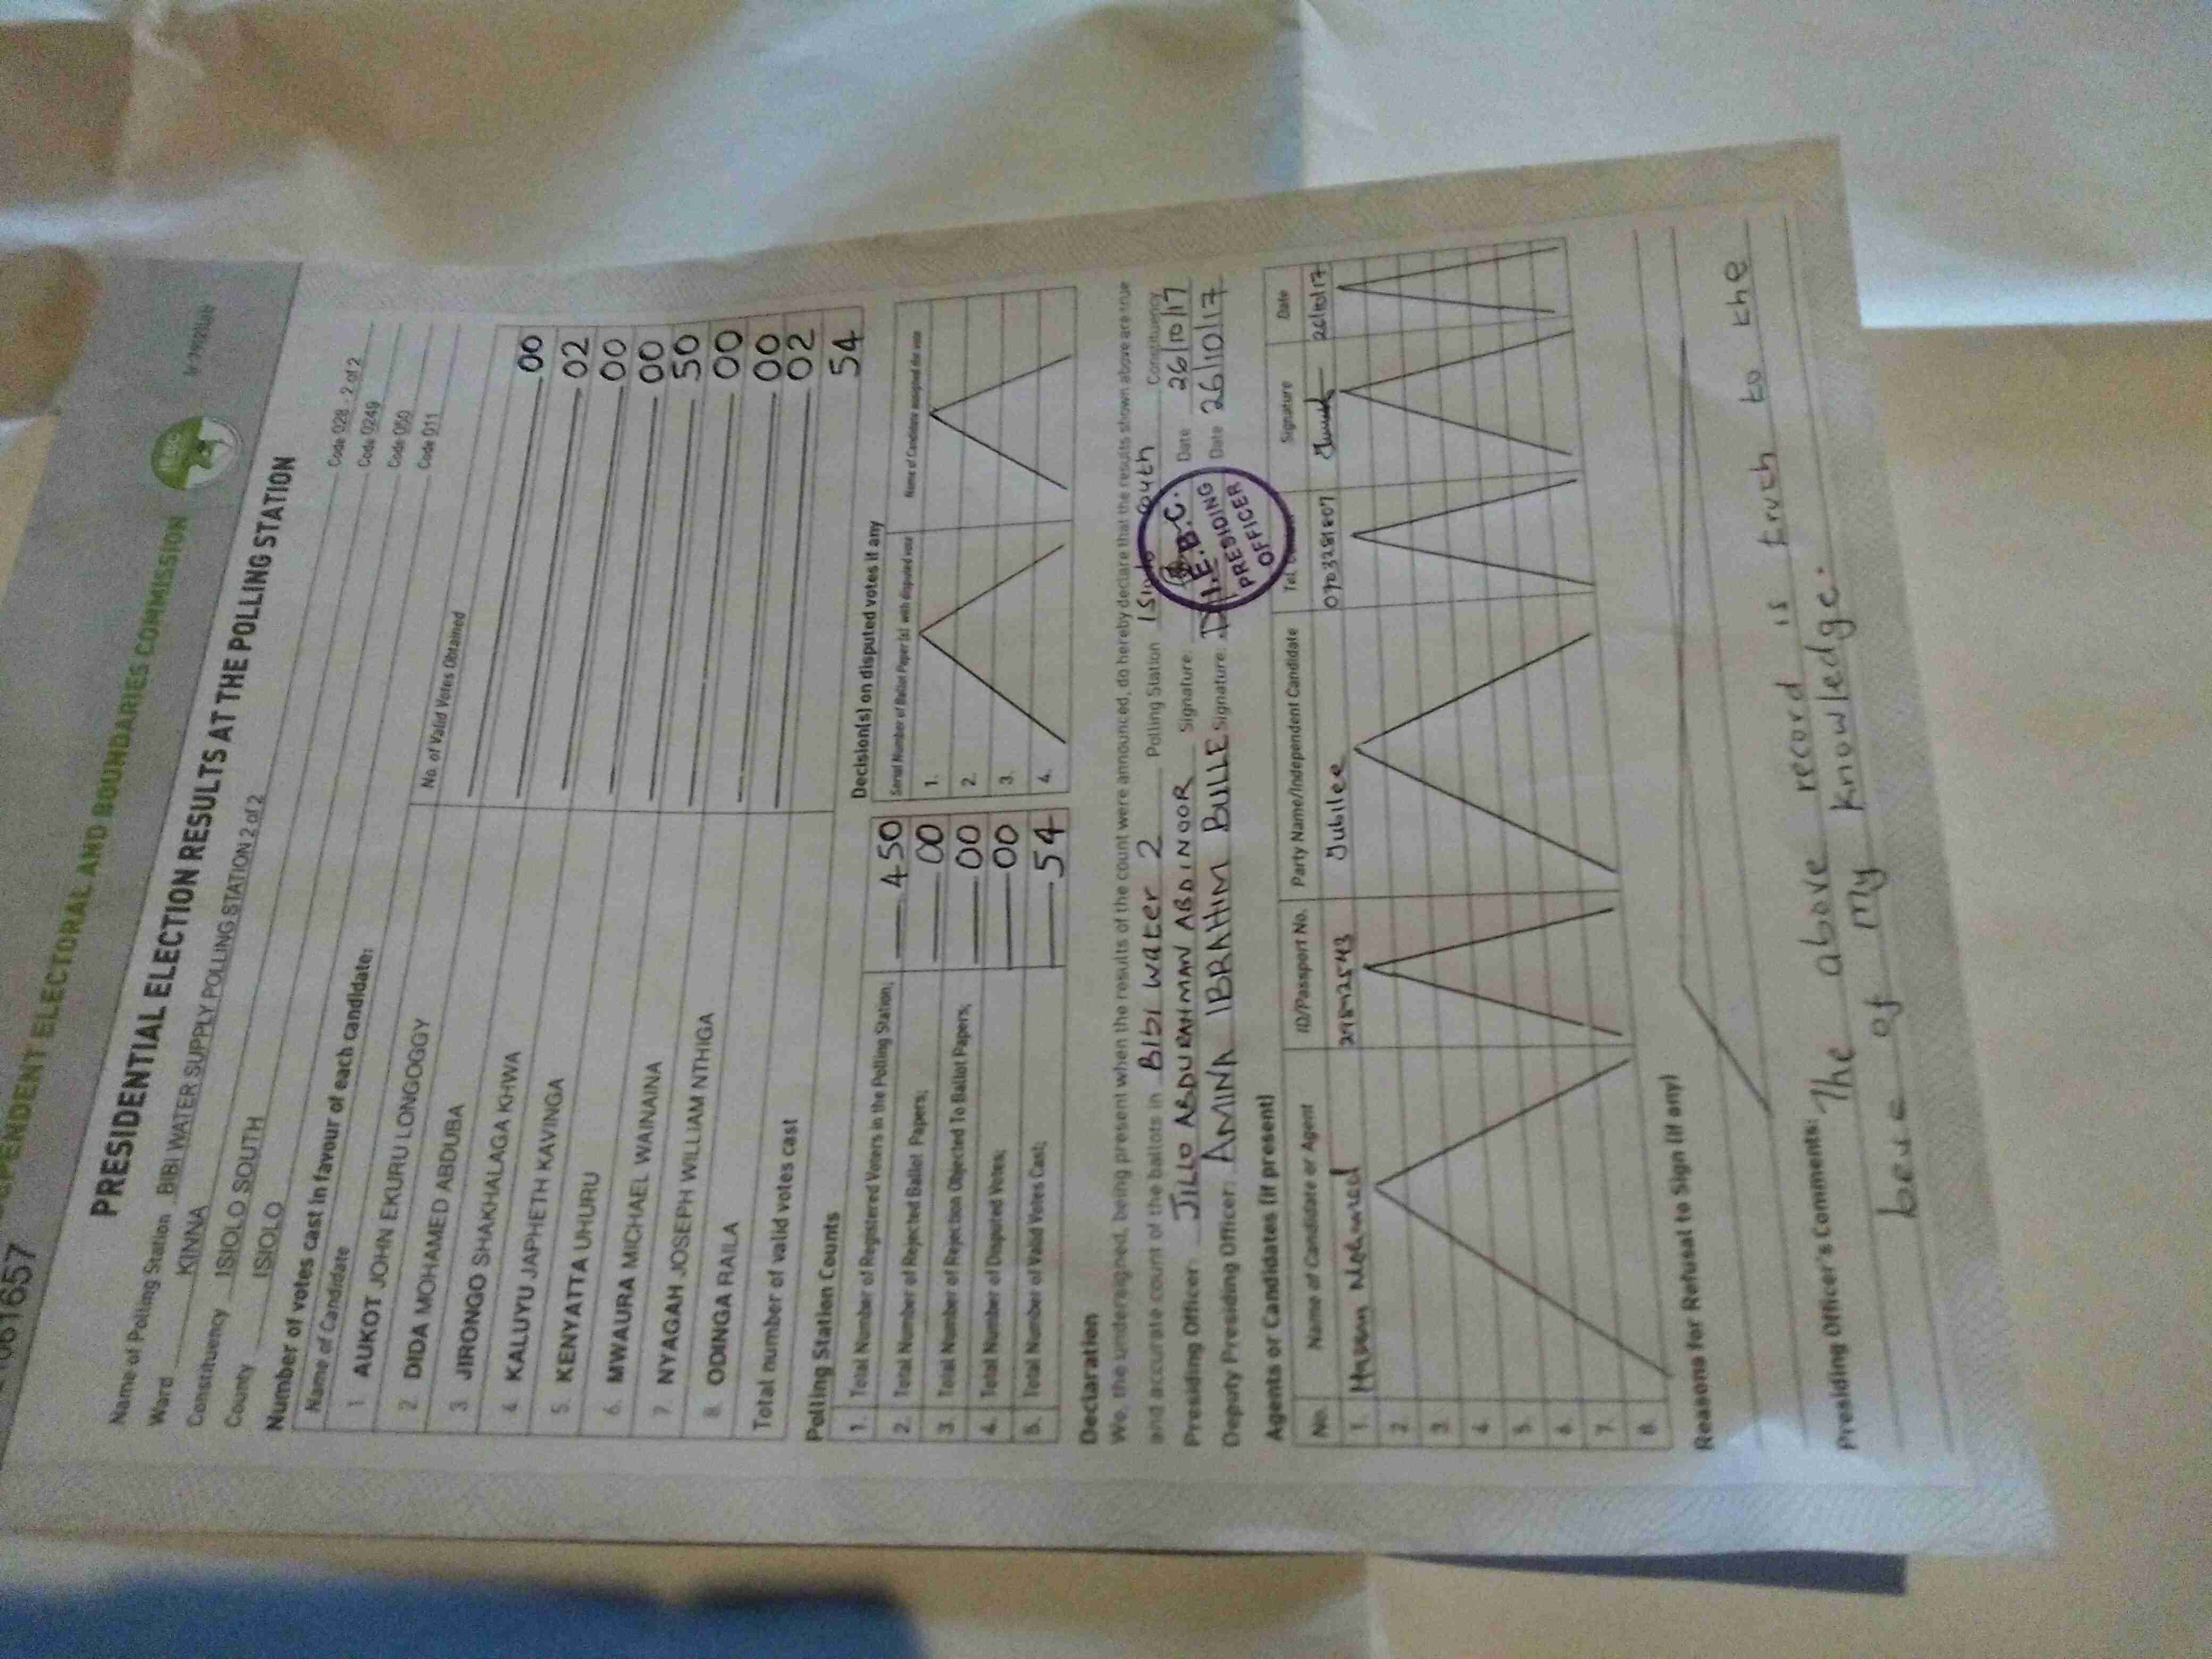 061657
INDEPENDENT ELECTORAL AND BOUNDARIES COMMISSION
IEBC
PRESIDENTIAL ELECTION RESULTS AT THE POLLING STATION
Name of Polling Station BIBI WATER SUPPLY POLLING STATION 2 of 2 Code 028 - 2 of 2
Ward KINNA Code 0249
Constituency ISIOLO SOUTH Code 050
County ISIOLO Code 011
Number of votes cast in favour of each candidate:
Name of Candidate No. of Valid Votes Obtained
1 AUKOT JOHN EKURU LONGOGGY 00
2. DIDA MOHAMED ABDUBA 02
3. JIRONGO SHAKHALAGA KHWA 00
4. KALUYU JAPHETH KAVINGA 00
5. KENYATTA UHURU 50
6. MWAURA MICHAEL WAINAINA 00
7. NYAGAH JOSEPH WILLIAM NTHIGA 00
8. ODINGA RAILA 02
Total number of valid votes cast 54
Polling Station Counts
1. Total Number of Registered Voters in the Polling Station; 450
2. Total Number of Rejected Ballot Papers; 00
3. Total Number of Rejection Objected To Ballot Papers; 00
4. Total Number of Disputed Votes; 00
5. Total Number of Valid Votes Cast; 54
Decision(s) on disputed votes if any
Serial Number of Ballot Paper (s) with disputed vote Name of Candidate assigned the vote
1.
2.
3.
4.
Declaration
We, the undersigned, being present when the results of the count were announced, do hereby declare that the results shown above are true
and accurate count of the ballots in Bibi Water 2 Polling Station Isiolo South Constituency
Presiding Officer: JILLO ABDURAHMAN ABDINOOR Signature: Date 26/10/17
Deputy Presiding Officer: AMINA IBRAHIM BULLE Signature: Date 26/10/17
I.E.B.C.
PRESIDING
OFFICER
Agents or Candidates (if present)
No. Name of Candidate or Agent ID/Passport No. Party Name/Independent Candidate Tel. Signature Date
1. Hassan Mohamed Jubilee 0703281807 26/10/17
2.
3.
4.
5.
6.
7.
8.
Reasons for Refusal to Sign (if any)
Presiding Officer's Comments: The above record is truth to the
beue of my knowledge.